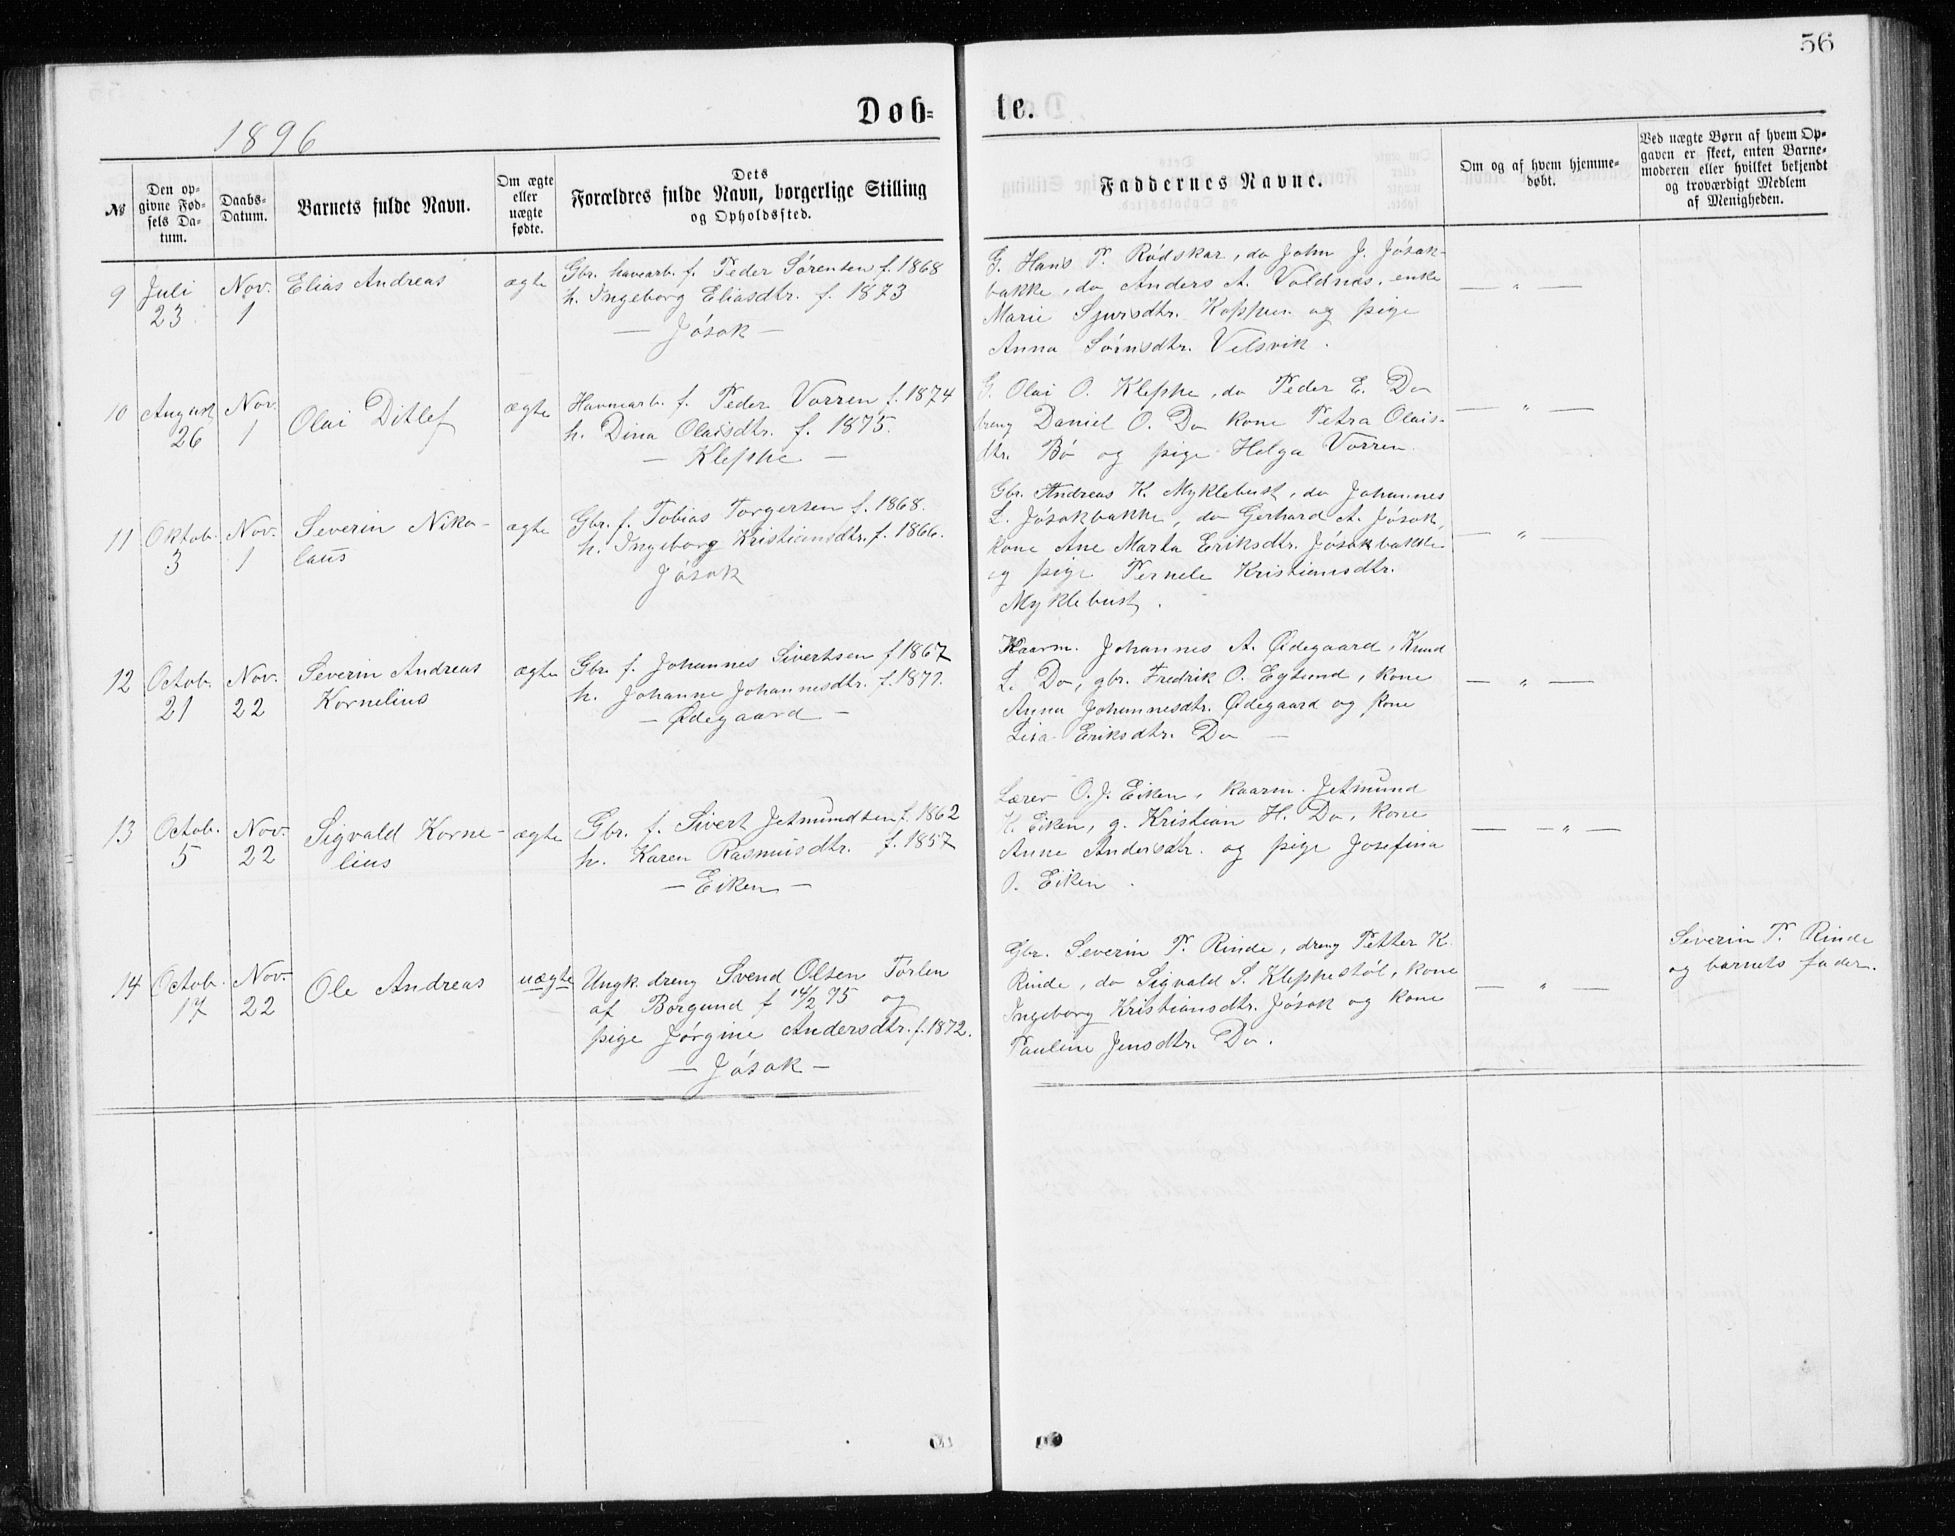 56
1896
Døb=
te.
№
Den op-
givne Fød-
sels Da-
tum.
Daabs-
Datum.
Barnets fulde Navn.
Om ægte
eller
uægte
fødte.
Dets
Forældres fulde Navn, borgerlige Stilling
og Opholdssted.
Faddernes Navne.
Om og af hvem hjemme-
døbt.
Ved uægte Børn af hvem Op-
gaven er skeet, enten Barne-
moderen eller hvilket bekjendt
og troværdigt Medlem
af Menigheden.
9
Juli
23
Nov.
1
Elias Andreas
ægte
Gbr. havearb. f. Peder Sørensen f. 1868
h. Ingeborg Eliasdtr. f. 1873
— Jøsok —
G. Hans P. Rødskar, do John J. Jøsok-
bakke, do Anders A. Voldnes, enke
Marie Sjursdtr. Koppen og pige
Anna Sørnsdtr. Velsvik.
— „ —
10
August
26
Nov.
1
Olai Ditlef
ægte
Havnearb. f. Peder Vorren f. 1874
h. Dina Olaisdtr. f. 1875.
— Kleppe —
G. Olai O. Kleppe, do Peder E. Do
dreng Daniel O. Do kone Petra Olais-
dtr. Bø og pige Helga Vorren.
— „ —
11
Oktob.
3
Nov.
1
Severin Niko-
laus
ægte
Gbr. f. Tobias Torgersen f. 1868.
h. Ingeborg Kristiansdtr. f. 1866.
Jøsok
Gbr. Andreas K. Myklebust, do Johannes
L. Jøsokbakke, do Gerhard A. Jøsok,
kone Ane Marta Eriksdtr. Jøsokbakke
og pige Pernele Kristiansdtr.
Myklebust.
— „ —
12
Octob.
21
Nov.
22
Severin Andreas
Kornelius
ægte
Gbr. f. Johannes Sivertsen f 1867
h. Johanne Johannesdtr. f. 1871.
— Ødegaard —
Kaarm. Johannes A. Ødegaard, Knud
L. Do, gbr. Fredrik O. Egsund, kone
Anna Johannesdtr. Ødegaard og kone
Lisa Eriksdtr. Do —
— „ —
13
Octob.
5
Nov.
22
Sigvald Korne-
lius
ægte
Gbr. f. Sivert Jetmundsen f. 1862
h. Karen Rasmusdtr. f. 1857
— Eiken —
Lærer O. J. Eiken, kaarm. Jetmund
K. Eiken, g. Kristian H. Do, kone
Anne Andersdtr. og pige Josefina
O. Eiken.
— „ —
14
Octob.
17
Nov.
22
Ole Andreas
uægte
Ungk. dreng Svend Olsen Tørlen
af Borgund f 14/2 75 og
pige Jørgine Andersdtr. f. 1872.
— Jøsok —
Gbr. Severin P. Rinde, dreng Petter K.
Rinde, do Sigvald S. Kleppestøl, kone
Ingeborg Kristiansdtr. Jøsok og kone
Pauline Jensdtr. Do.
— „ —
Severin P. Rinde
og barnets fader.